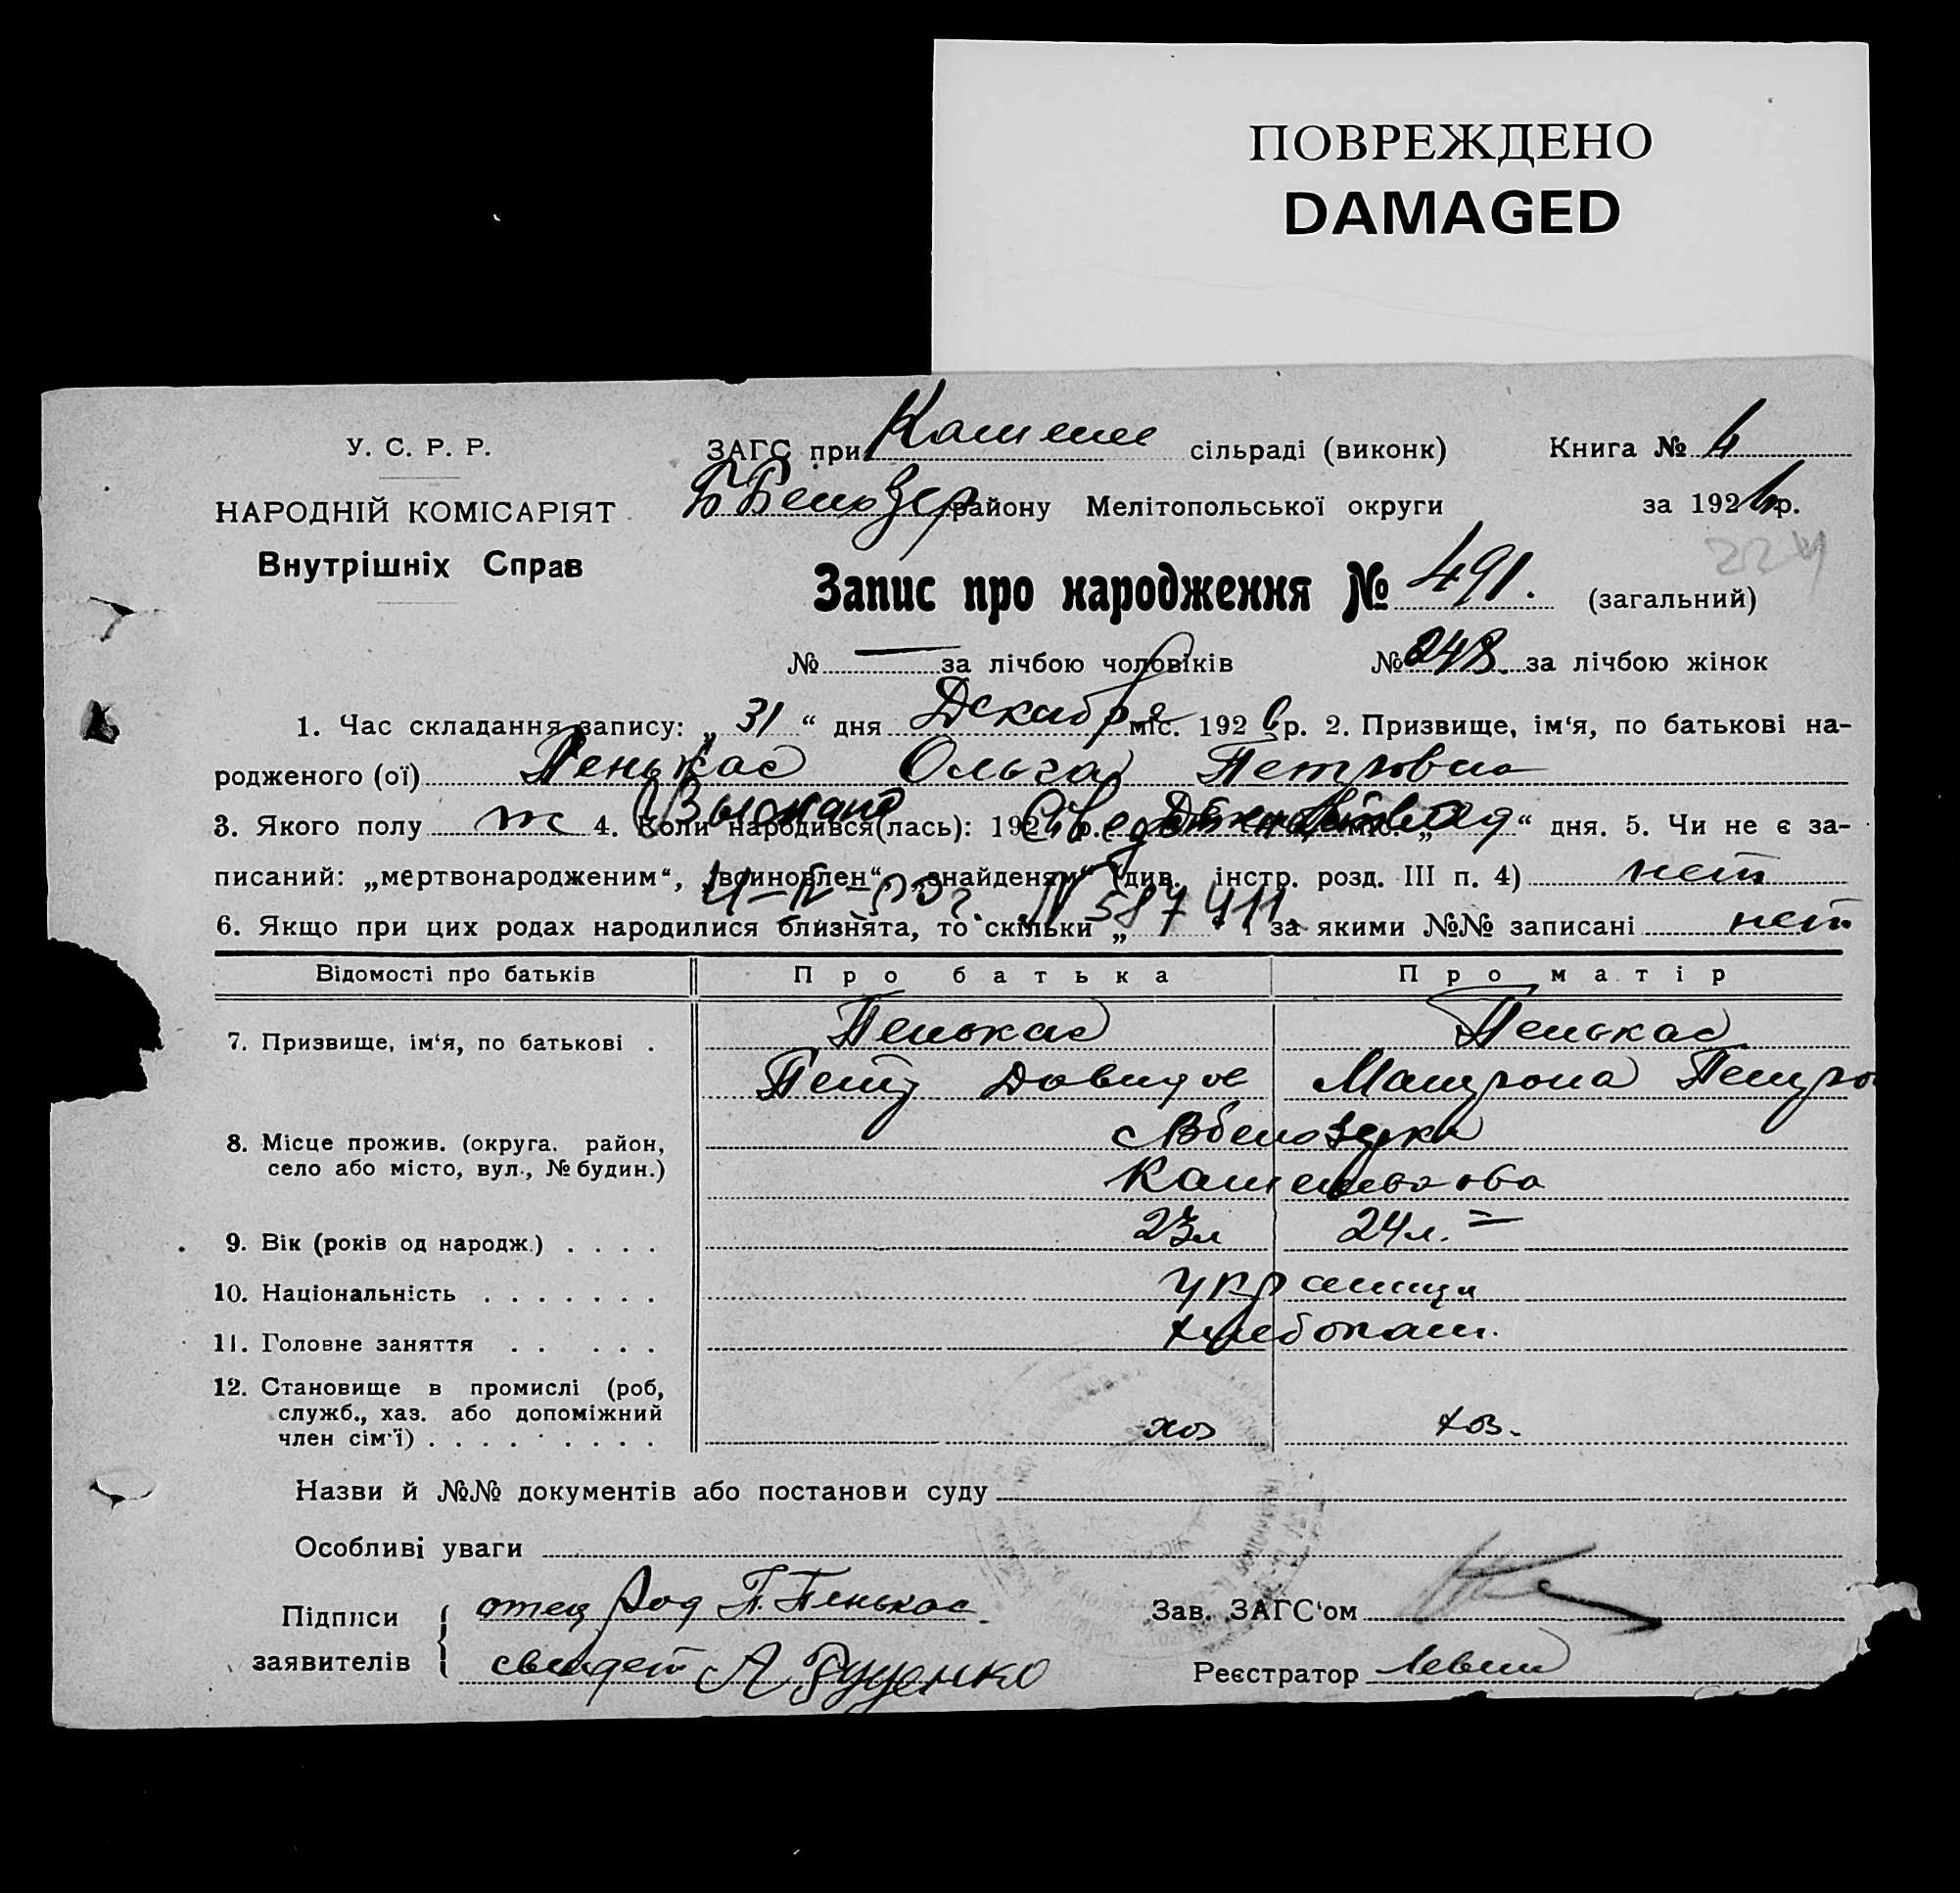 ПОВРЕЖДЕНО
DAMAGED
У. С. Р. Р.
НАРОДНІЙ КОМІСАРІЯТ
Внутрішніх Справ
ЗАГС при сільраді (виконк) Книга №
району Мелітопольської округи за 1926 р.
224
Запис про народження № 491. (загальний)
№ — за лічбою чоловіків № 248. за лічбою жінок
1. Час складання запису: „ 31 “ дня Декабря міс. 1926 р. 2. Призвище, ім‘я, по батькові на-
родженого (ої) Пенькас Ольга Петровна
3. Якого полу ж 4. Коли народився(лась): 192 р. міс. „ “ дня. 5. Чи не є за-
писаний: „мертвонародженим“, „всиновлен“, „знайденям“ (див. інстр. розд. III п. 4) нет
6. Якщо при цих родах народилися близнята, то скільки „ “ і за якими №№ записані нет
Выдано
N 587411
Відомості про батьків Про батька Про матір
7. Призвище, ім‘я, по батькові . Пенькас Пенькас
Петр Давидов Матрона Петро
8. Місце прожив. (округа, район,
село або місто, вул., № будин.)
9. Вік (років од народж.) . . . . 23л 24л.
10. Національність . . . . . . . украинци
11. Головне заняття . . . . . хлебопаш.
12. Становище в промислі (роб,
служб., хаз. або допоміжний
член сім‘ї) . . . . . . . . . хоз хоз.
Назви й №№ документів або постанови суду
Особливі уваги
Підписи
заявителів
отец П. Пенькас
свидет
Зав. ЗАГС‘ом
Реєстратор